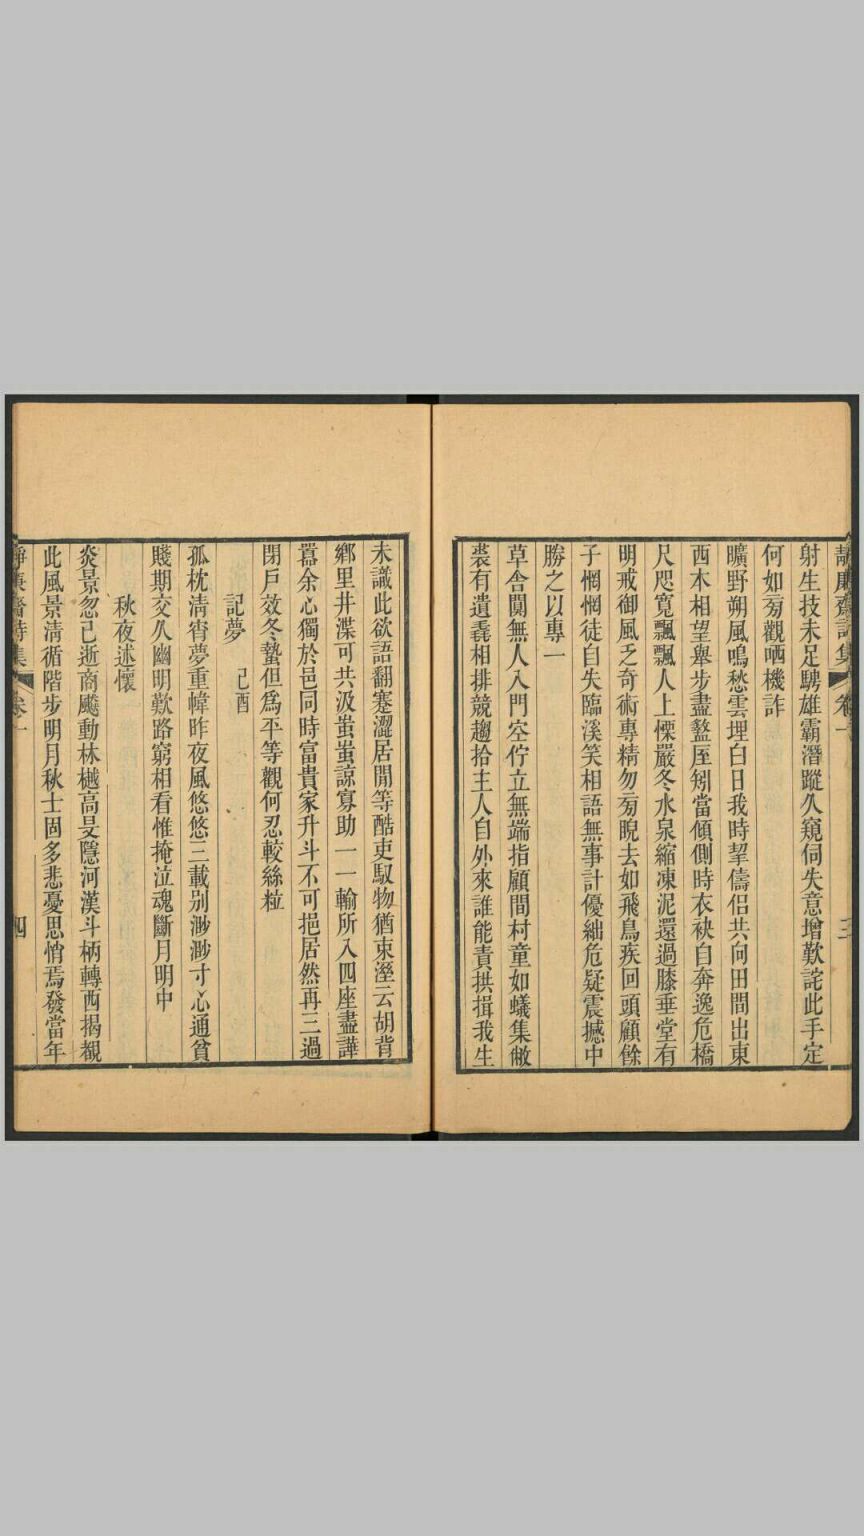 靜廉齋詩集 卷一 三
射生技未足騁雄霸潛蹤久窺伺失意增歎詫此手定
何如旁觀哂機詐
曠野朔風鳴愁雲埋白日我時挈儔侶共向田間出東
西木相望舉步盡盩厔矧當傾側時衣袂自奔逸危橋
尺咫寬飄飄人上慄嚴冬水泉縮凍泥還過膝垂堂有
明戒御風乏奇術專精勿旁睨去如飛鳥疾回頭顧餘
子惘惘徒自失臨溪笑相語無事計優絀危疑震撼中
勝之以專一
草舍闃無人入門空佇立無端指顧間村童如蟻集敝
裘有遺毳相排競趨拾主人自外來誰能責拱揖我生
未識此欲語翻蹇澀居閒等酷吏馭物猶束溼云胡背
鄉里井渫可共汲蚩蚩諒寡助一一輸所入四座盡譁
囂余心獨於邑同時富貴家升斗不可挹居然再三過
閉戶效冬蟄但爲平等觀何忍較絲粒
記夢 己酉
孤枕清宵夢重幃昨夜風悠悠三載别渺渺寸心通貧
賤期交久幽明歎路窮相看惟掩泣魂斷月明中
秋夜述懷
炎景忽已逝商飇動林樾高旻隱河漢斗柄轉西揭覩
此風景清循階步明月秋士固多悲憂思悄焉發當年
靜廉齋詩集 卷一 四